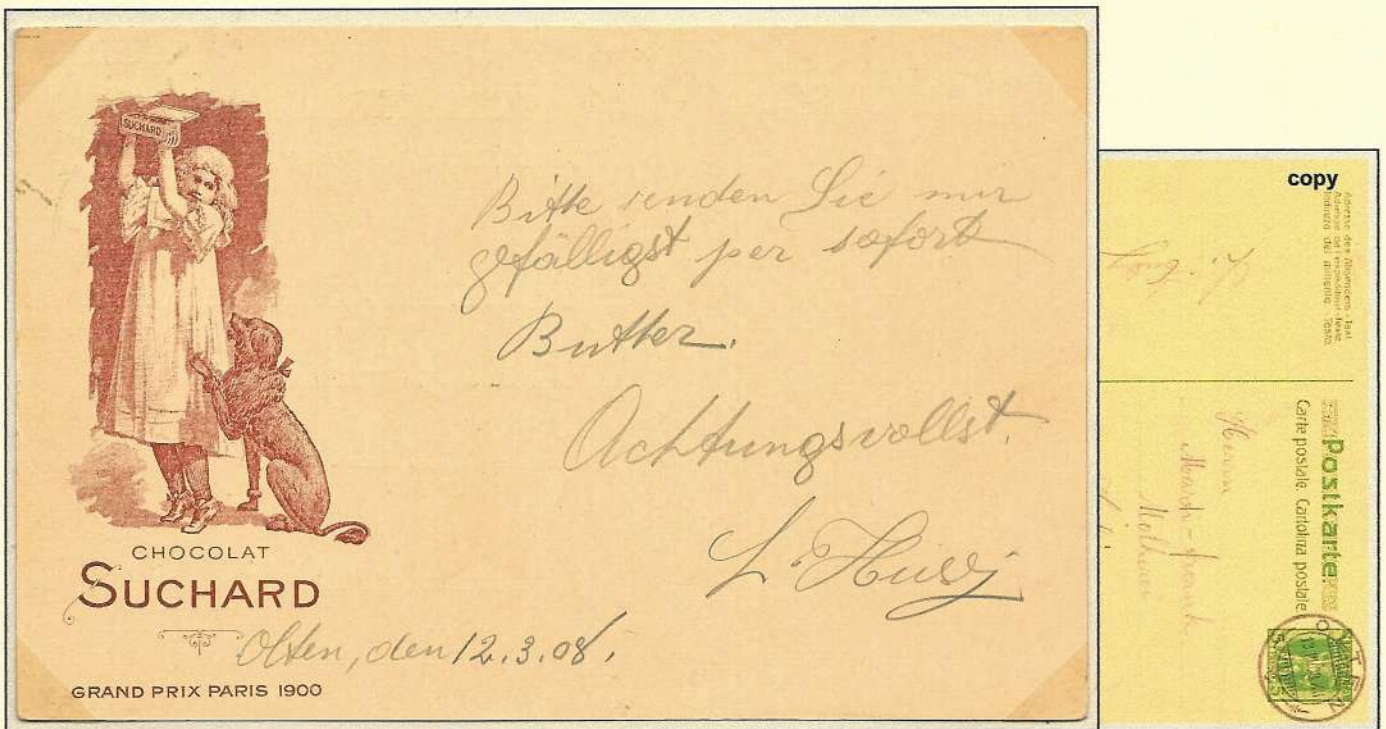 SUCHARD
Bitte senden Sie mir
gefälligst per sofort
Butter.
Achtungsvollst.
CHOCOLAT
SUCHARD
Olten, den 12.3.08.
GRAND PRIX PARIS 1900
copy
Postkarte.
Carte postale. Cartolina postale.
Herrn
OLTEN